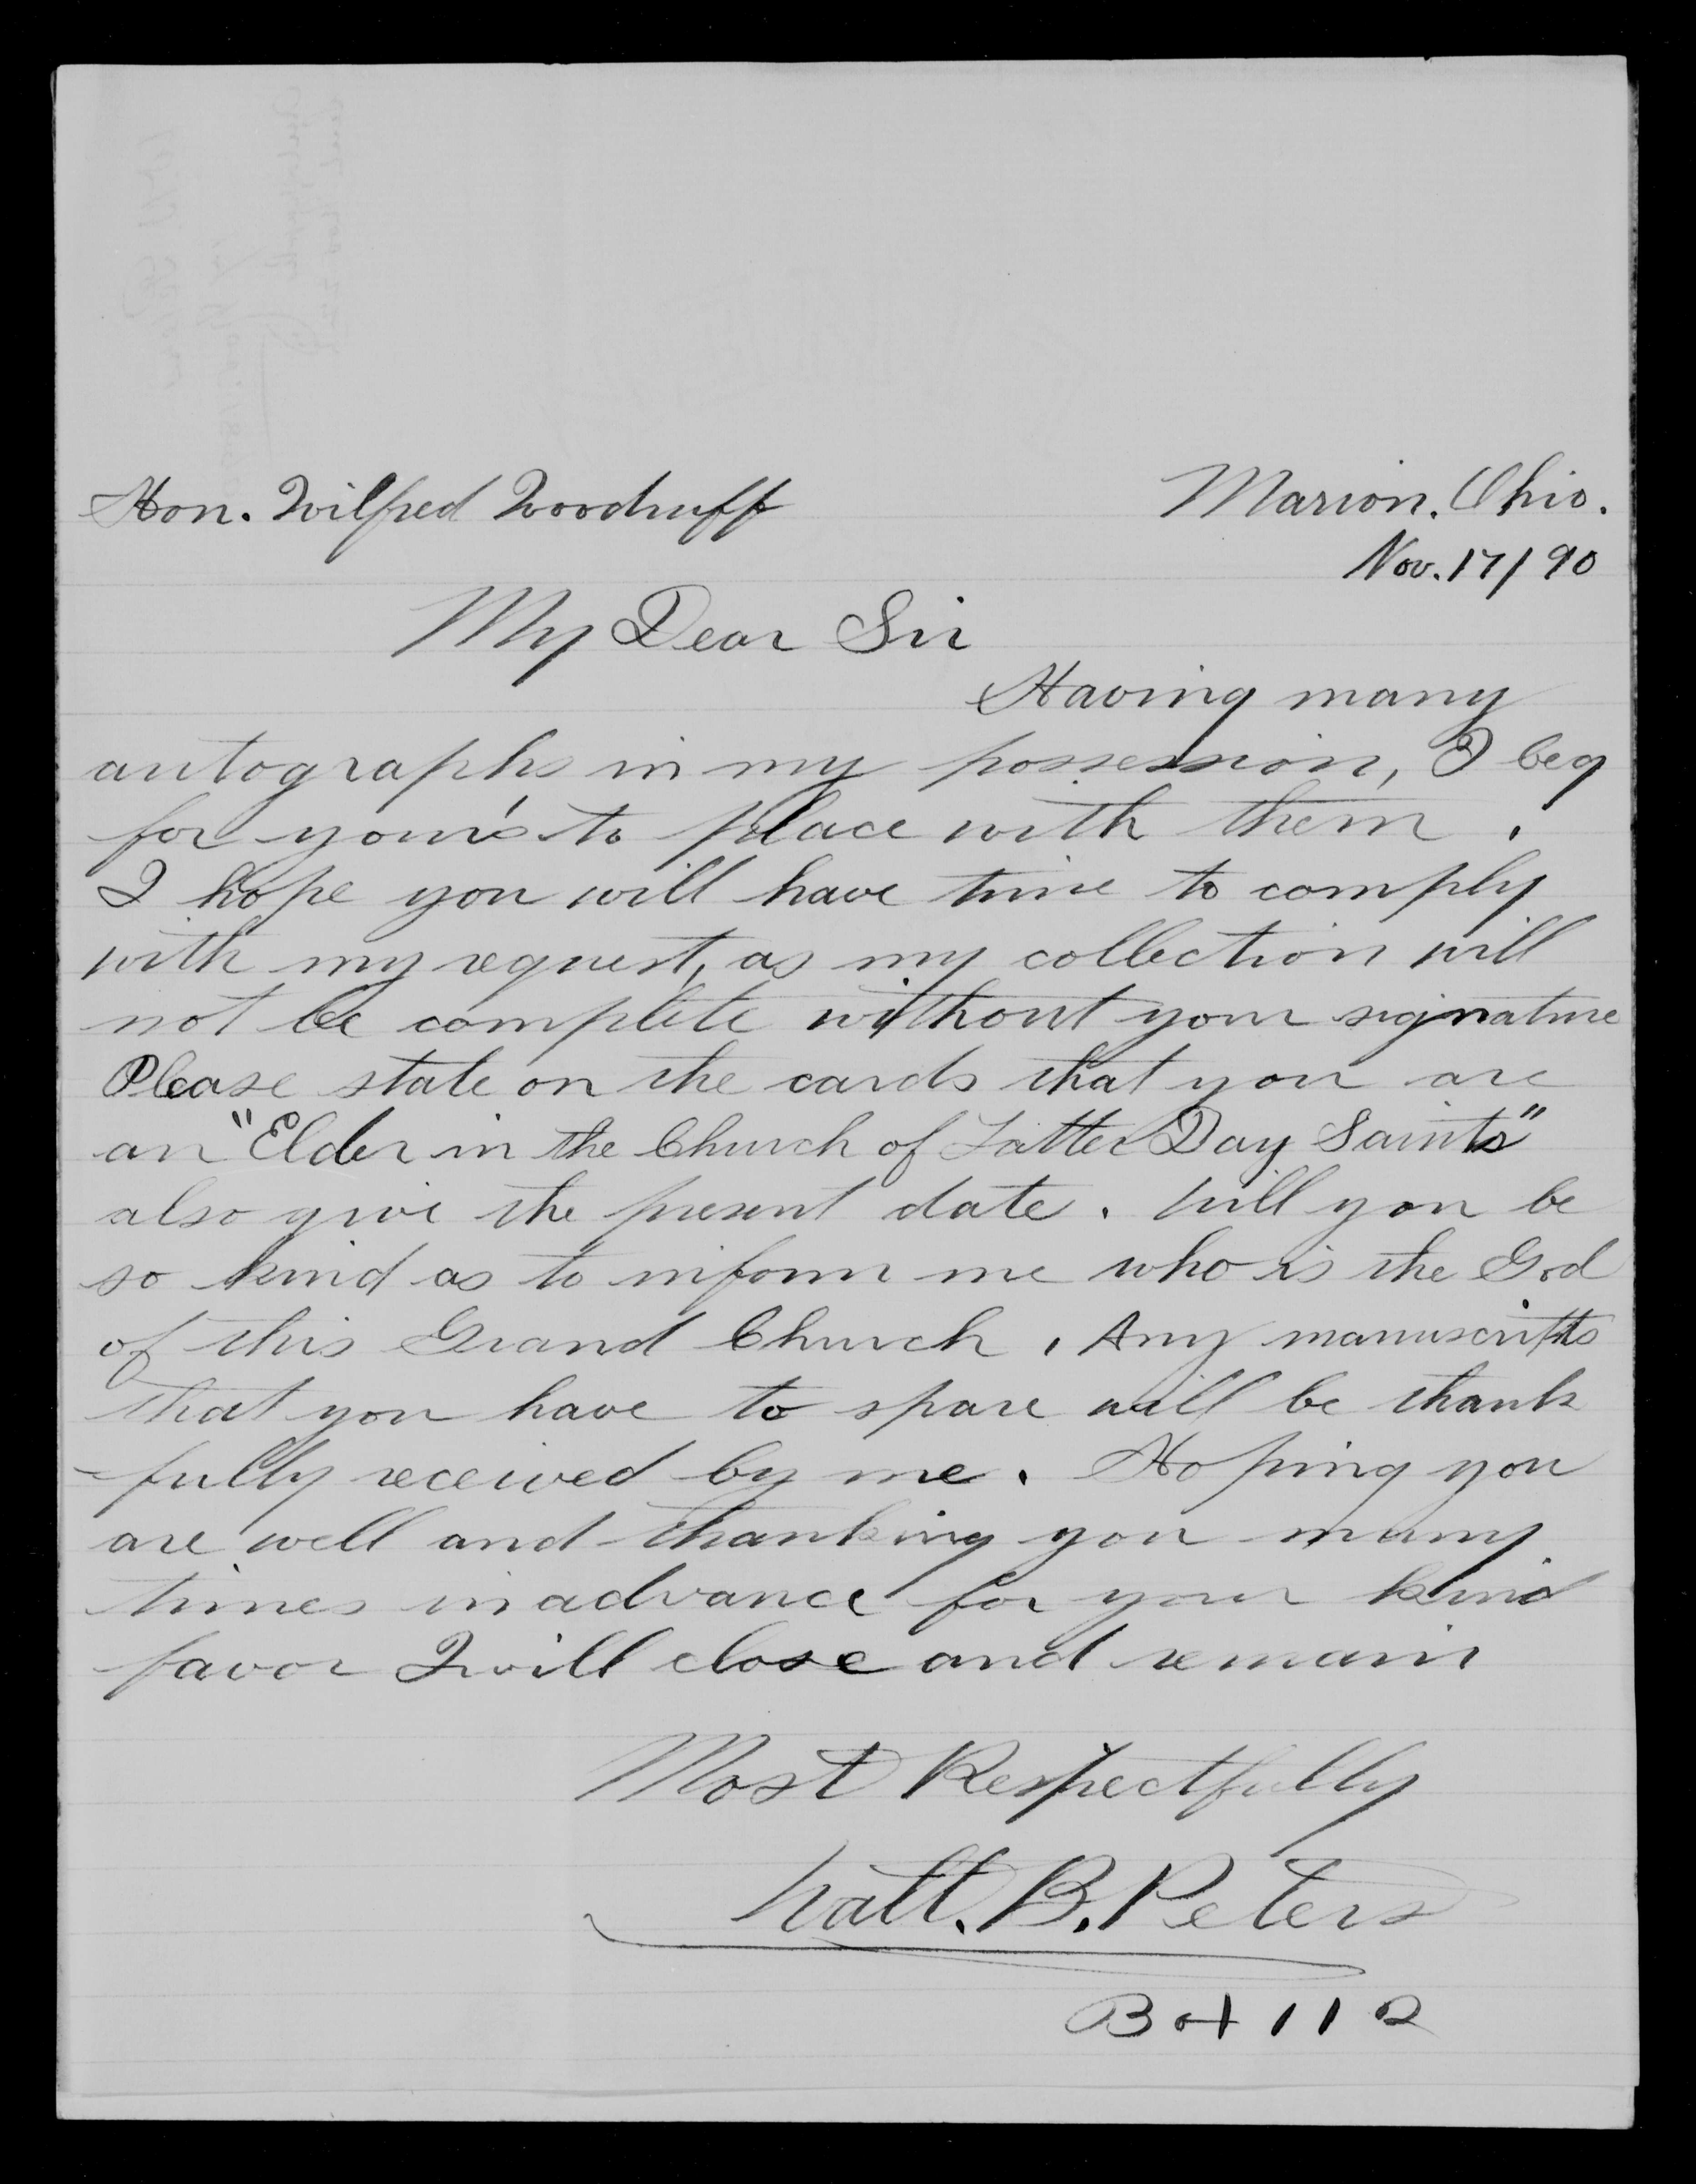 Hon. Wilfred Woodruff
Marion, Ohio.
Nov. 17/90
My Dear Sir
Having many
autographs in my possession, I beg
for your's to place with them.
I hope you will have time to comply
with my request, as my collection will
not be complete without your signature
Please state on the cards that you are
an "Elder in the Church of Latter Day Saints"
also give the present date. Will you be
so kind as to inform me who is the God
of this Grand Church. Any manuscripts
that you have to spare will be thank
-fully received by me. Hoping you
are well and thanking you many
times in advance for your kind
favor I will close and remain
Most Respectfully
Natt. B. Peters
Box 112